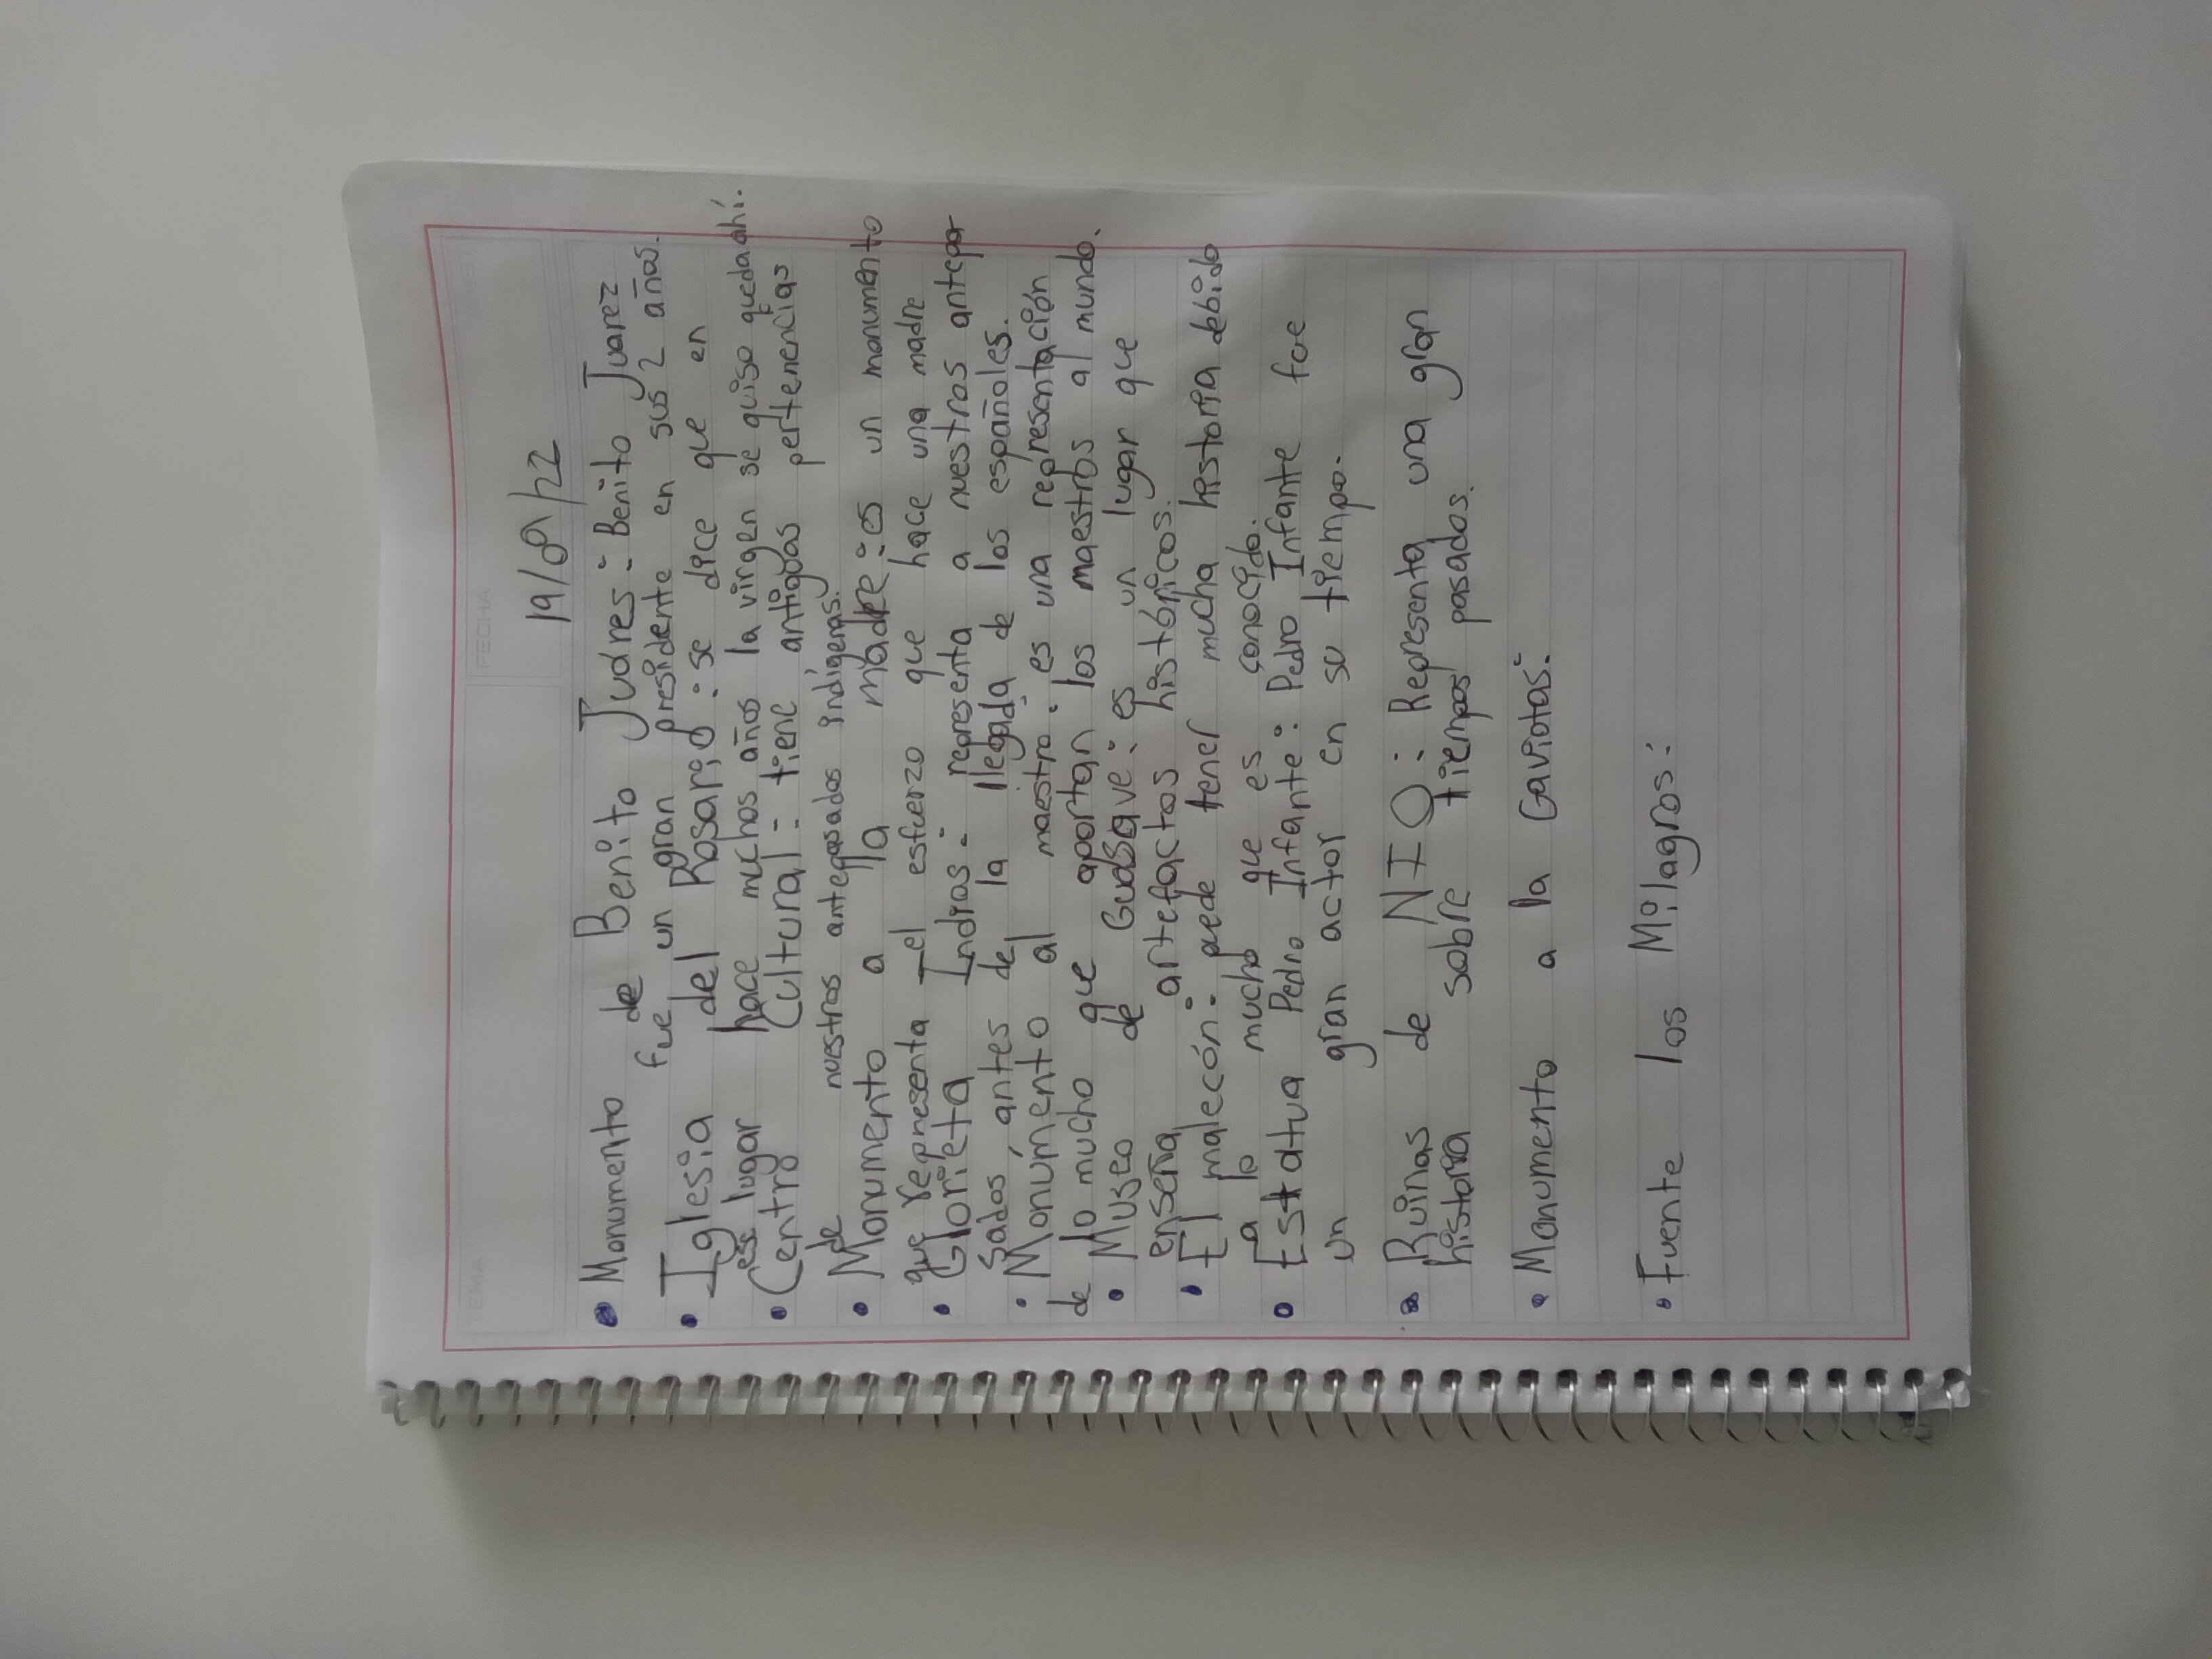 FECHA
19/09/22
TEMA
• Monumento de Benito Juares: Benito Juarez
fue un gran presidente en sus 2 años.
• Iglesia del Rosario: se dice que en
ese lugar hace muchos años la virgen se quiso queda ahí.
• Centro Cultural: tiene antiguas pertenencias
de nuestros antepasados indígenas.
• Monumento a la madre: es un monumento
que representa el esfuerzo que hace una madre
• Glorieta Indios: representa a nuestros antepa
sados, antes de la llegada de los españoles.
• Monumento al maestro: es una representación
de lo mucho que aportan los maestros al mundo.
• Museo de Guasave: es un lugar que
enseña artefactos históricos.
• El malecón: puede tener mucha historia debido
a lo mucho que es conocido.
• Estatua Pedro Infante: Pedro Infante fue
un gran actor en su tiempo.
• Ruinas de NIO: Representa una gran
historia sobre tiempos pasados.
• Monumento a la Gaviotas:
• Fuente los Milagros: